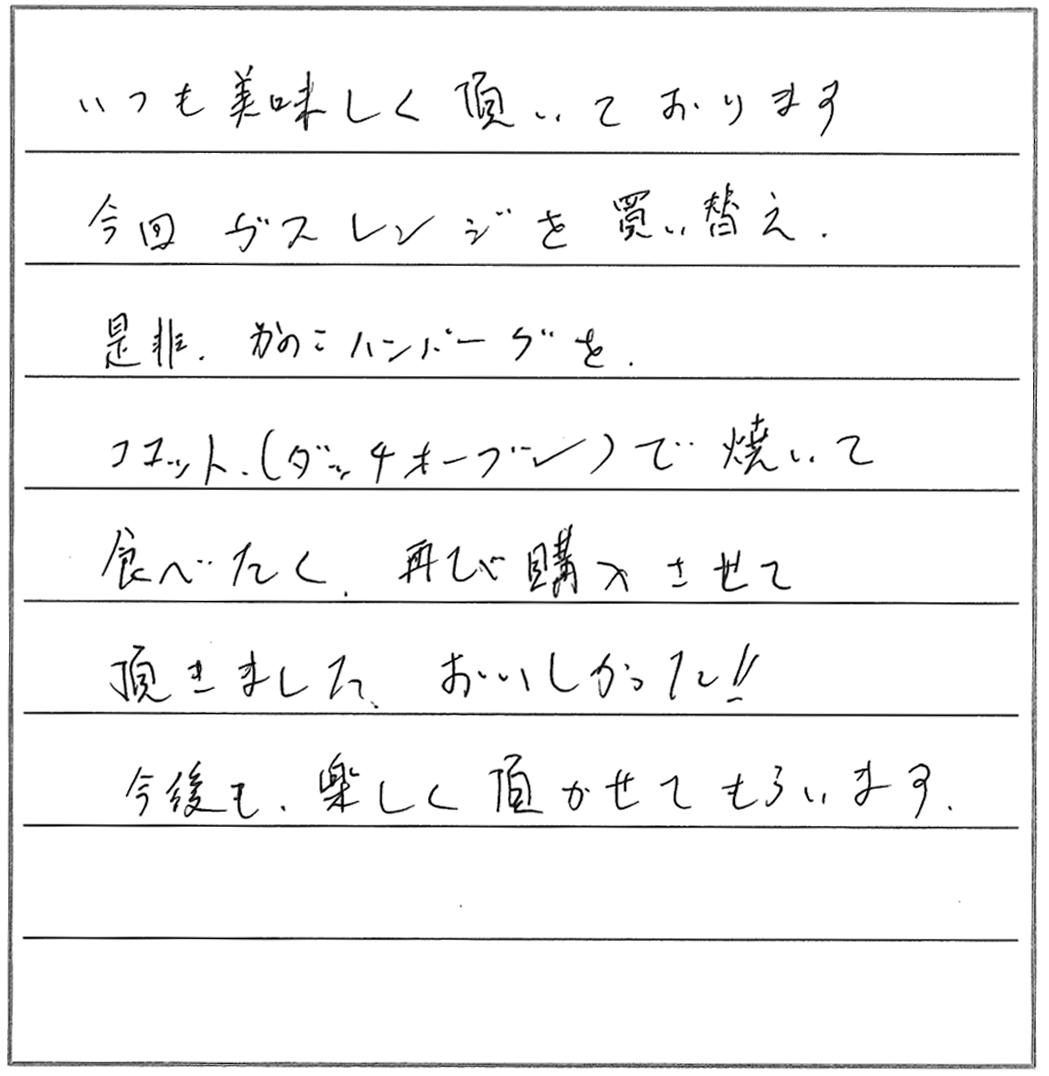 いつも美味しく頂いております
今回ガスレンジを買い替え.
是非.かのこハンバーグを.
ココット.(ダッチオーブン)で焼いて
食べたく.再び購入させて
頂きました、おいしかった!!
今後も、楽しく頂かせてもらいます.